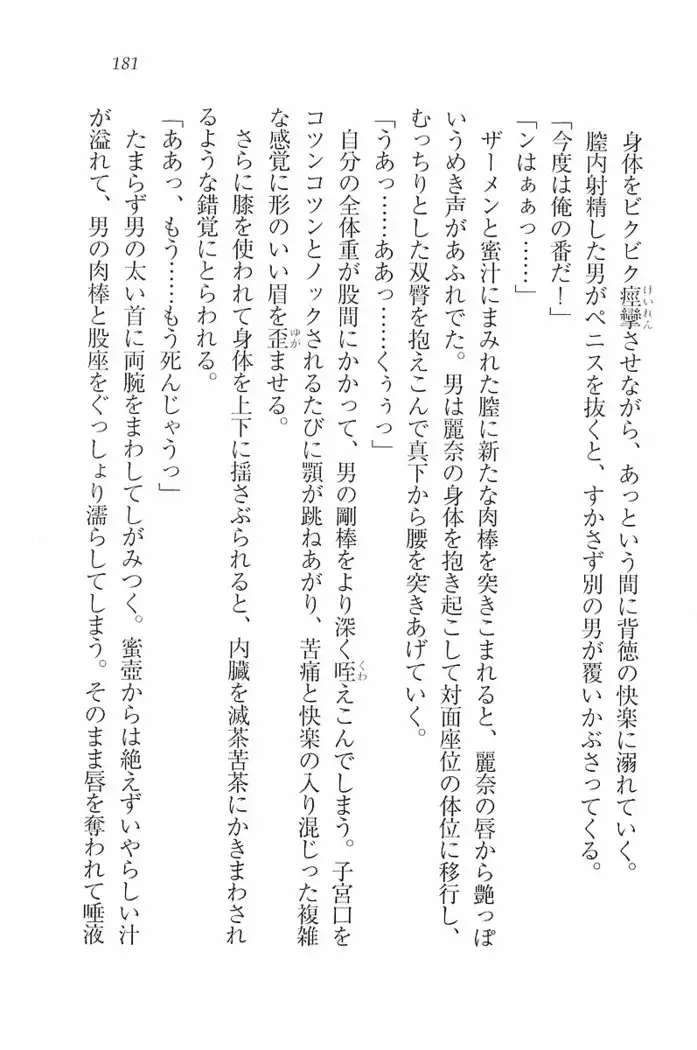 181
身体をビクビク痙攣させながら、あっという間に背徳の快楽に溺れていく。
けいれん
膣内射精した男がペニスを抜くと、すかさず別の男が覆いかぶさってくる。
「今度は俺の番だ!」
「ンはぁぁっ……」
ザーメンと蜜汁にまみれた膣に新たな肉棒を突きこまれると、麗奈の唇から艶っぽ
いうめき声があふれでた。男は麗奈の身体を抱き起こして対面座位の体位に移行し、
むっちりとした双臀を抱えこんで真下から腰を突きあげていく。
「うあっ……ああっ……くぅぅっ」
自分の全体重が股間にかかって、男の剛棒をより深く咥えこんでしまう。子宮口を
くわ
コツンコツンとノックされるたびに顎が跳ねあがり、苦痛と快楽の入り混じった複雑
な感覚に形のいい眉を歪ませる。
ゆが
さらに膝を使われて身体を上下に揺さぶられると、内臓を滅茶苦茶にかきまわされ
るような錯覚にとらわれる。
「ああっ、もう……もう死んじゃうっ」
たまらず男の太い首に両腕をまわしてしがみつく。蜜壺からは絶えずいやらしい汁
が溢れて、男の肉棒と股座をぐっしょり濡らしてしまう。そのまま唇を奪われて唾液